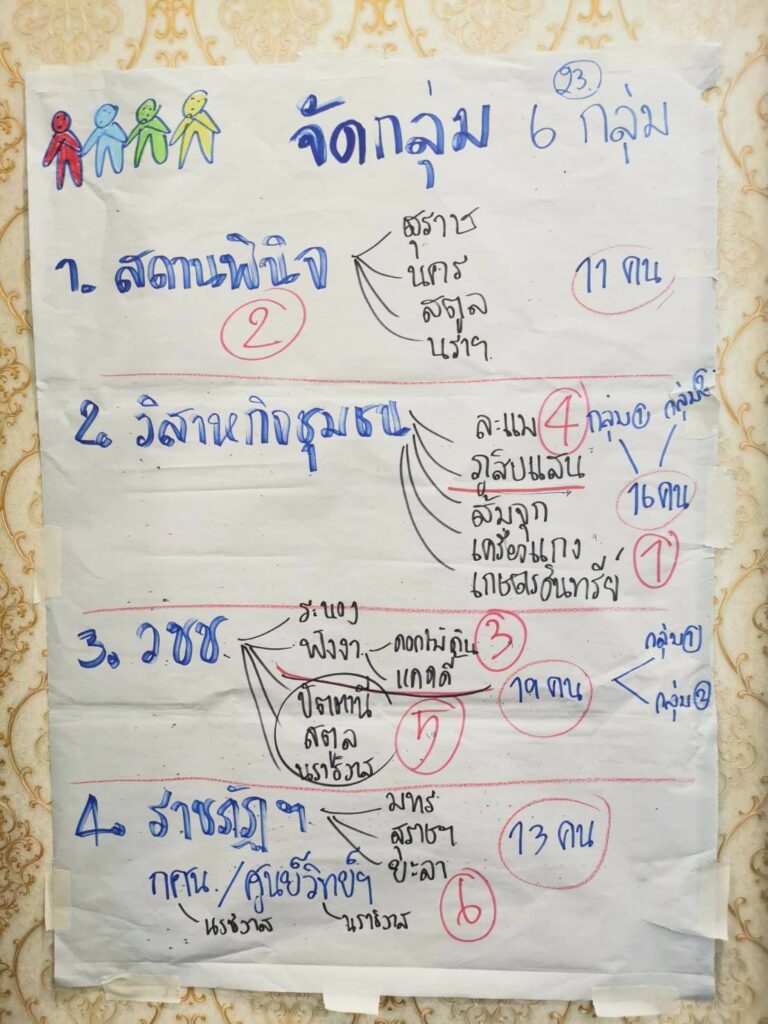 23.
จัดกลุ่ม 6 กลุ่ม
1. สถานพินิจ
สุราษ
นคร
สตูล
นราฯ
11 คน
2
2. วิสาหกิจชุมชน
ละแม
ภูสิบแสน
ส้มจุก
เครื่องแกง
เกษตรอินทรีย์
4
กลุ่ม 1
กลุ่ม 2
16 คน
1
3. วชช.
ระนอง
พังงา
ดอกไม้
แคดดี้
3
ปัตตานี
สตูล
นราธิวาส
5
19 คน
กลุ่ม 1
กลุ่ม 2
4. ราชภัฏฯ
มทร
สุราษฯ
ยะลา
13 คน
กศน. / ศูนย์วิทย์ฯ
นราธิวาส
นราธิวาส
6